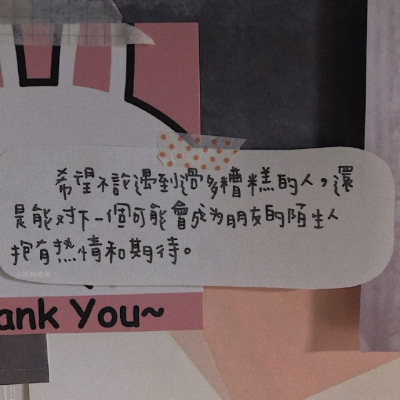 希望不論遇到過多糟糕的人，還
是能对下一個可能會成为朋友的陌生人
抱有熱情和期待。
ank You~